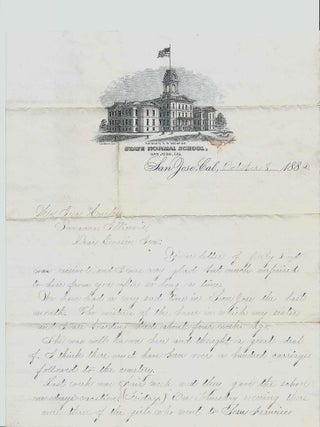 STATE NORMAL SCHOOL,
SAN JOSE, CAL.
San Jose, Cal, October 8 188
Illinois
Dear Cousin
Your letter of July
was received and I was very glad but much surprised
to hear from you after so long a time.
We have had a very sad time in San Jose the last
month. The mistress of the house in which my sister
and I are boarding died about four weeks ago.
She was well known here and thought a great deal
of. I think there must have been over a hundred carriages
followed to the cemetery.
Last week was week and they gave the school
one days vacation (Friday.) On Thursday evening there
were three of the girls who went to San Francisco